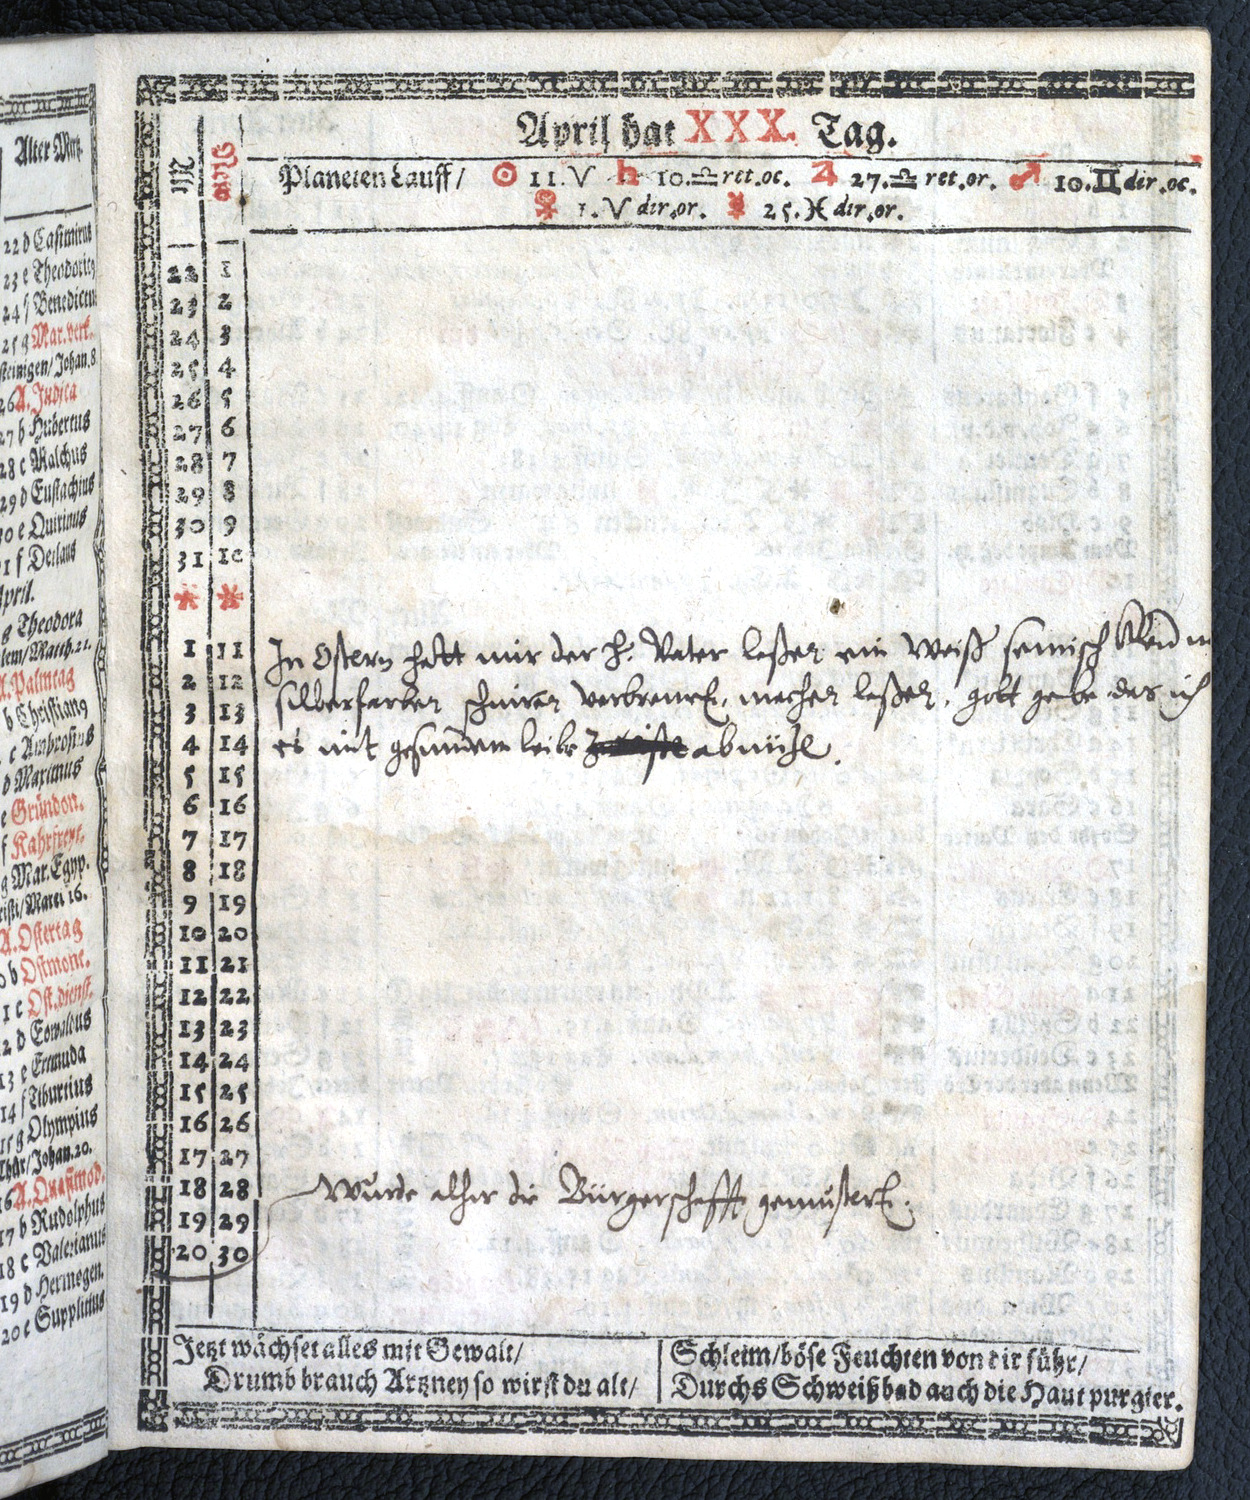 Alter Mertz
22 d Casimirus
23 e Theodoricus
24 f Benedictus
25 g Mar. verk.
steinigen/Johan. 8
26 A. Judica
27 b Hubertus
28 c Malchus
29 d Eustachius
30 e Quirinus
31 f Detlaus
April.
g Theodora
lem/Matth. 21.
A. Palmtag
b Christianꝰ
c Ambrosius
d Maximus
e Gründon.
f Kahrfreyt.
g Mar. Egyp.
risti/Marci 16.
A. Ostertag
10 b Ostmont.
11 c Ost. dienst.
12 d Eowaldus
13 e Ermuda
14 f Tiburtius
15 g Olympius
Thür/Johan. 20.
16 A. Quasimod.
17 b Rudolphus
18 c Valerianus
19 d Hermogen.
20 e Supplitius
April hat XXX. Tag.
Planeten Lauff/ ☉ 11. ♈ ♄ 10. ♎ ret. oc. ♃ 27. ♎ ret. or. ♂ 10. ♊ dir. oc.
♀ 1. ♈ dir. or. ☿ 25. ♓ dir. or.
22 1
23 2
24 3
25 4
26 5
27 6
28 7
29 8
30 9
31 10
* *
1 11 In Ostern hatt mir der H. Vater laßen ein Weiß semisch Kleid
2 12 silberfarben schnüren verbremet, machen laßen, gott gebe das ich
3 13
4 14 es mit gesundem leibe abnütze.
5 15
6 16
7 17
8 18
9 19
10 20
11 21
12 22
13 23
14 24
15 25
16 26
17 27
18 28 Wurde alhir die Bürgerschafft gemustert.
19 29
20 30
Jetzt wächset alles mit Gewalt/
Drumb brauch Artzney so wirst du alt/
Schleim/böse Feuchten von dir führ/
Durchs Schweißbad auch die Haut purgier.